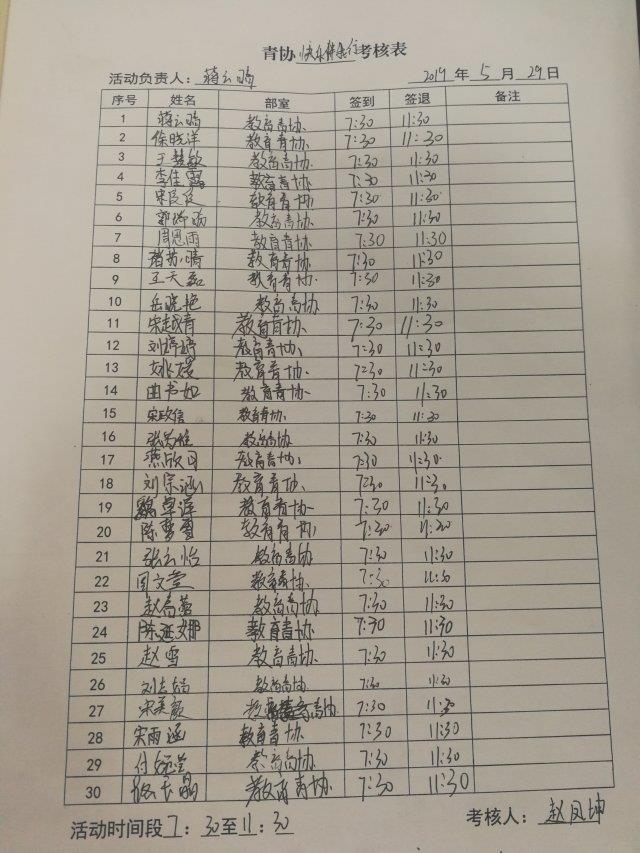 青协快乐健康行考核表
活动负责人：蒋云鸥 2019年5月29日
序号 姓名 部室 签到 签退 备注
1 蒋云鸥 教育青协 7:30 11:30
2 徐晓洋 教育青协 7:30 11:30
3 教育青协 7:30 11:30
4 李佳霖 教育青协 7:30 11:30
5 教育青协 7:30 11:30
6 教育青协 7:30 11:30
7 周恩雨 教育青协 7:30 11:30
8 教育青协 7:30 11:30
9 王天磊 教育青协 7:30 11:30
10 岳晓艳 教育青协 7:30 11:30
11 宋越青 教育青协 7:30 11:30
12 刘婷婷 教育青协 7:30 11:30
13 姚媛 教育青协 7:30 11:30
14 曲书如 教育青协 7:30 11:30
15 宋政信 教育青协 7:30 11:30
16 教育青协 7:30 11:30
17 燕欣日 教育青协 7:30 11:30
18 刘宗涵 教育青协 7:30 11:30
19 教育青协 7:30 11:30
20 陈雪 教育青协 7:30 11:30
21 张云怡 教育青协 7:30 11:30
22 周文莹 教育青协 7:30 11:30
23 赵春蕾 教育青协 7:30 11:30
24 陈延娜 教育青协 7:30 11:30
25 赵雪 教育青协 7:30 11:30
26 教育青协 7:30 11:30
27 宋美颖 青协 7:30 11:30
28 宋雨涵 教育青协 7:30 11:30
29 教育青协 7:30 11:30
30 教育青协 7:30 11:30
活动时间段7：30至11：30 考核人：赵凤坤